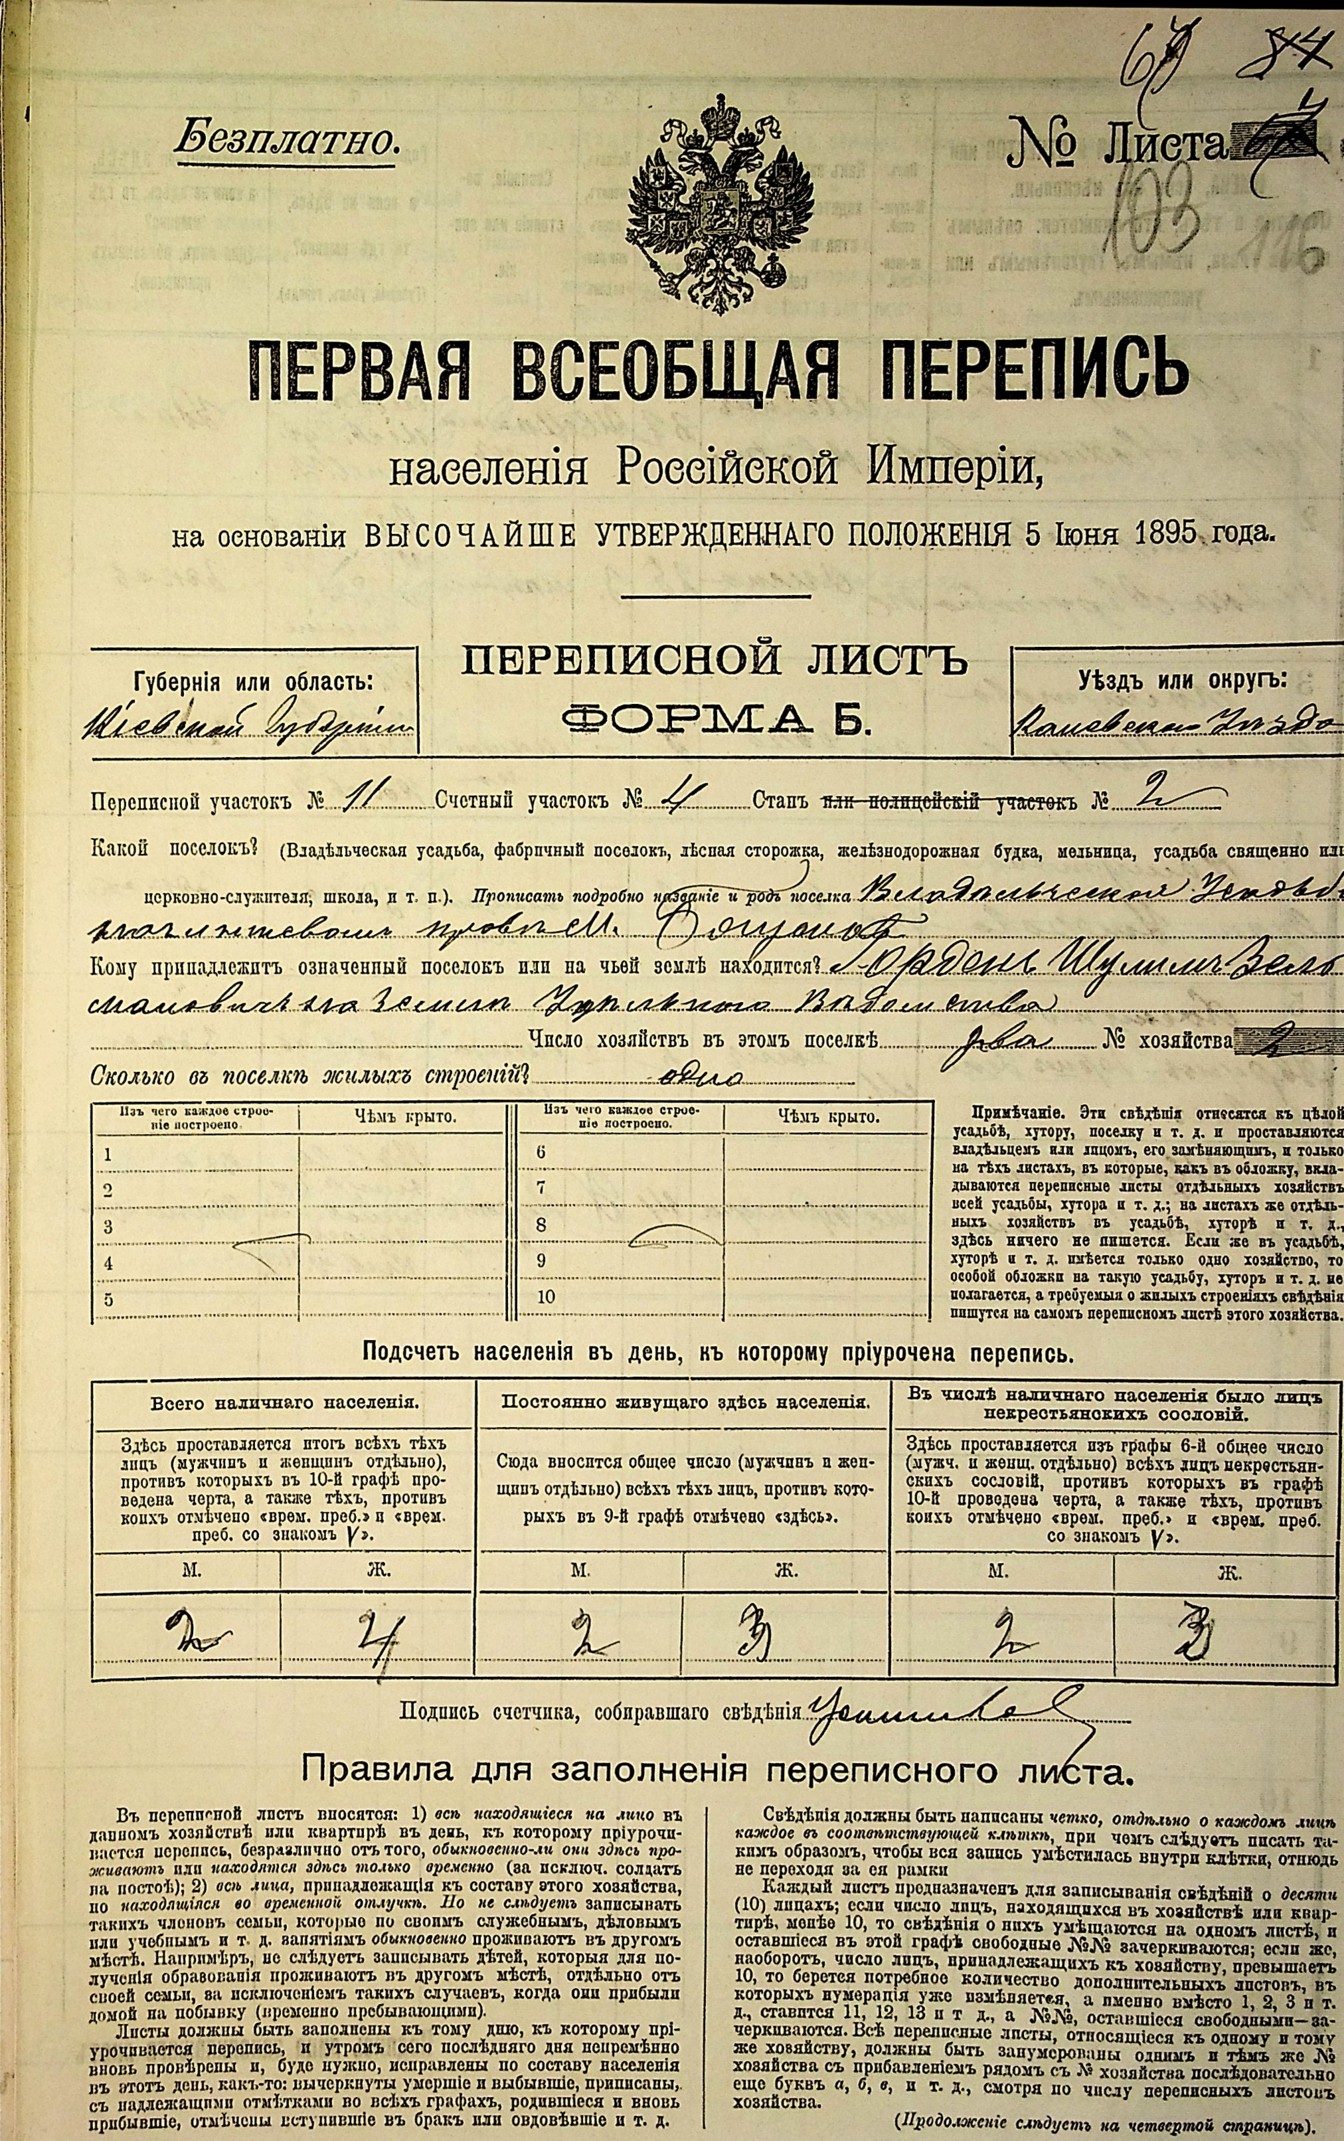 67 84
Безплатно.
№ Листа
103 116
ПЕРВАЯ ВСЕОБЩАЯ ПЕРЕПИСЬ
населенія Россійской Имперіи,
на основаніи ВЫСОЧАЙШЕ УТВЕРЖДЕННАГО ПОЛОЖЕНІЯ 5 Іюня 1895 года.
ПЕРЕПИСНОЙ ЛИСТЪ
ФОРМА Б.
Губернія или область:
Кіевской Губерніи
Уѣздъ или округъ:
Каневскаго Уѣзда
Переписной участокъ № 11 Счетный участокъ № 4 Станъ или полицейскій участокъ № 2
Какой поселокъ? (Владѣльческая усадьба, фабричный поселокъ, лѣсная сторожка, желѣзнодорожная будка, мельница, усадьба священно или
церковно-служителя, школа, и т. п.). Прописать подробно названіе и родъ поселка Владѣльческая Усадьба
м. Богуслав
Кому принадлежитъ означенный поселокъ или на чьей землѣ находится? Гордень Шулимъ Зель
мановичъ на Земли Удѣльного Вѣдомства
Число хозяйствъ въ этомъ поселкѣ два № хозяйства 2
Сколько въ поселкѣ жилыхъ строеній? одно
Изъ чего каждое строе-
ніе построено
Чѣмъ крыто.
Изъ чего каждое строе-
ніе построено.
Чѣмъ крыто.
1 6
2 7
3 8
4 9
5 10
Примѣчаніе. Эти свѣдѣнія относятся къ цѣлой
усадьбѣ, хутору, поселку и т. д. и проставляются
владѣльцемъ или лицомъ, его замѣняющимъ, и только
на тѣхъ листахъ, въ которые, какъ въ обложку, вкла-
дываются переписные листы отдѣльныхъ хозяйствъ
всей усадьбы, хутора и т. д.; на листахъ же отдѣль-
ныхъ хозяйствъ въ усадьбѣ, хуторѣ и т. д.,
здѣсь ничего не пишется. Если же въ усадьбѣ,
хуторѣ и т. д. имѣется только одно хозяйство, то
особой обложки на такую усадьбу, хуторъ и т. д. не
полагается, а требуемыя о жилыхъ строеніяхъ свѣдѣнія
пишутся на самомъ переписномъ листѣ этого хозяйства.
Подсчетъ населенія въ день, къ которому пріурочена перепись.
Всего наличнаго населенія.
Здѣсь проставляется итогъ всѣхъ тѣхъ
лицъ (мужчинъ и женщинъ отдѣльно),
противъ которыхъ въ 10-й графѣ про-
ведена черта, а также тѣхъ, противъ
коихъ отмѣчено «врем. преб.» и «врем.
преб. со знакомъ V».
Постоянно живущаго здѣсь населенія.
Сюда вносится общее число (мужчинъ и жен-
щинъ отдѣльно) всѣхъ тѣхъ лицъ, противъ кото-
рыхъ въ 9-й графѣ отмѣчено «здѣсь».
Въ числѣ наличнаго населенія было лицъ
некрестьянскихъ сословій.
Здѣсь проставляется изъ графы 6-й общее число
(мужч. и женщ. отдѣльно) всѣхъ лицъ некрестьян-
скихъ сословій, противъ которыхъ въ графѣ
10-й проведена черта, а также тѣхъ, противъ
коихъ отмѣчено «врем. преб.» и «врем. преб.
со знакомъ V».
М. Ж. М. Ж. М. Ж.
2 4 2 3 2 3
Подпись счетчика, собиравшаго свѣдѣнія
Правила для заполненія переписного листа.
Въ переписной листъ вносятся: 1) всѣ находящіеся на лицо въ
данномъ хозяйствѣ или квартирѣ въ день, къ которому пріурочи-
вается перепись, безразлично отъ того, обыкновенно-ли они здѣсь про-
живаютъ или находятся здѣсь только временно (за исключ. солдатъ
на постоѣ); 2) всѣ лица, принадлежащія къ составу этого хозяйства,
но находящіяся во временной отлучкѣ. Но не слѣдуетъ записывать
такихъ членовъ семьи, которые по своимъ служебнымъ, дѣловымъ
или учебнымъ и т. д. занятіямъ обыкновенно проживаютъ въ другомъ
мѣстѣ. Напримѣръ, не слѣдуетъ записывать дѣтей, которыя для по-
лученія образованія проживаютъ въ другомъ мѣстѣ, отдѣльно отъ
своей семьи, за исключеніемъ такихъ случаевъ, когда они прибыли
домой на побывку (временно пребывающими).
Листы должны быть заполнены къ тому дню, къ которому прі-
урочивается перепись, и утромъ сего послѣдняго дня непремѣнно
вновь провѣрены и, буде нужно, исправлены по составу населенія
въ этотъ день, какъ-то: вычеркнуты умершіе и выбывшіе, приписаны,
съ надлежащими отмѣтками во всѣхъ графахъ, родившіеся и вновь
прибывшіе, отмѣчены вступившіе въ бракъ или овдовѣвшіе и т. д.
Свѣдѣнія должны быть написаны четко, отдѣльно о каждомъ лицѣ
каждое въ соотвѣтствующей клѣткѣ, при чемъ слѣдуетъ писать та-
кимъ образомъ, чтобы вся запись умѣстилась внутри клѣтки, отнюдь
не переходя за ея рамки
Каждый листъ предназначенъ для записыванія свѣдѣній о десяти
(10) лицахъ; если число лицъ, находящихся въ хозяйствѣ или квар-
тирѣ, менѣе 10, то свѣдѣнія о нихъ умѣщаются на одномъ листѣ, и
оставшіеся въ этой графѣ свободные №№ зачеркиваются; если же,
наоборотъ, число лицъ, принадлежащихъ къ хозяйству, превышаетъ
10, то берется потребное количество дополнительныхъ листовъ, въ
которыхъ нумерація уже измѣняется, а именно вмѣсто 1, 2, 3 и т.
д., ставится 11, 12, 13 и т. д., а №№, оставшіеся свободными—за-
черкиваются. Всѣ переписные листы, относящіеся къ одному и тому
же хозяйству, должны быть занумерованы однимъ и тѣмъ же №
хозяйства съ прибавленіемъ рядомъ съ № хозяйства послѣдовательно
еще буквъ а, б, в, и т. д., смотря по числу переписныхъ листовъ
хозяйства.
(Продолженіе слѣдуетъ на четвертой страницѣ).